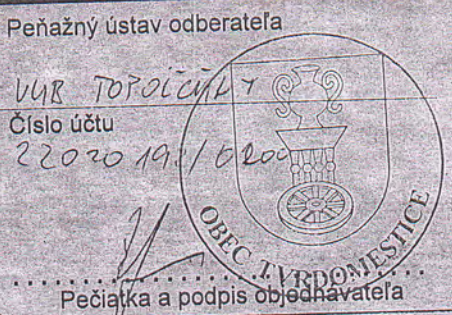 Peňažný ústav odberateľa
VÚB TOPOĽČANY
Číslo účtu
OBEC TVRDOMESTICE
Pečiatka a podpis objednávateľa